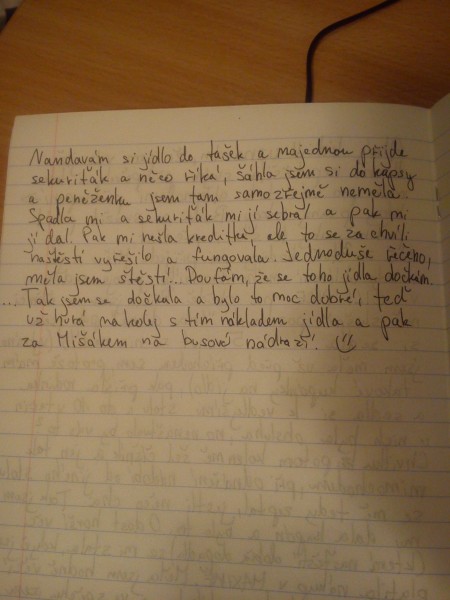 Nandavám si jídlo do tašek a najednou přijde
sekuriťák a něco říká, šáhla jsem si do kapsy
a peněženku jsem tam samozřejmě neměla.
Spadla mi a sekuriťák mi jí sebral a pak mi
jí dal. Pak mi nešla kreditka, ale to se za chvíli
naštěstí vyřešilo a fungovala. Jednoduše řečeno,
měla jsem štěstí... Doufám, že se toho jídla dočkám.
...Tak jsem se dočkala a bylo to moc dobré, teď
už hurá na kolej s tím nákladem jídla a pak
za Mišákem na busové nádraží.